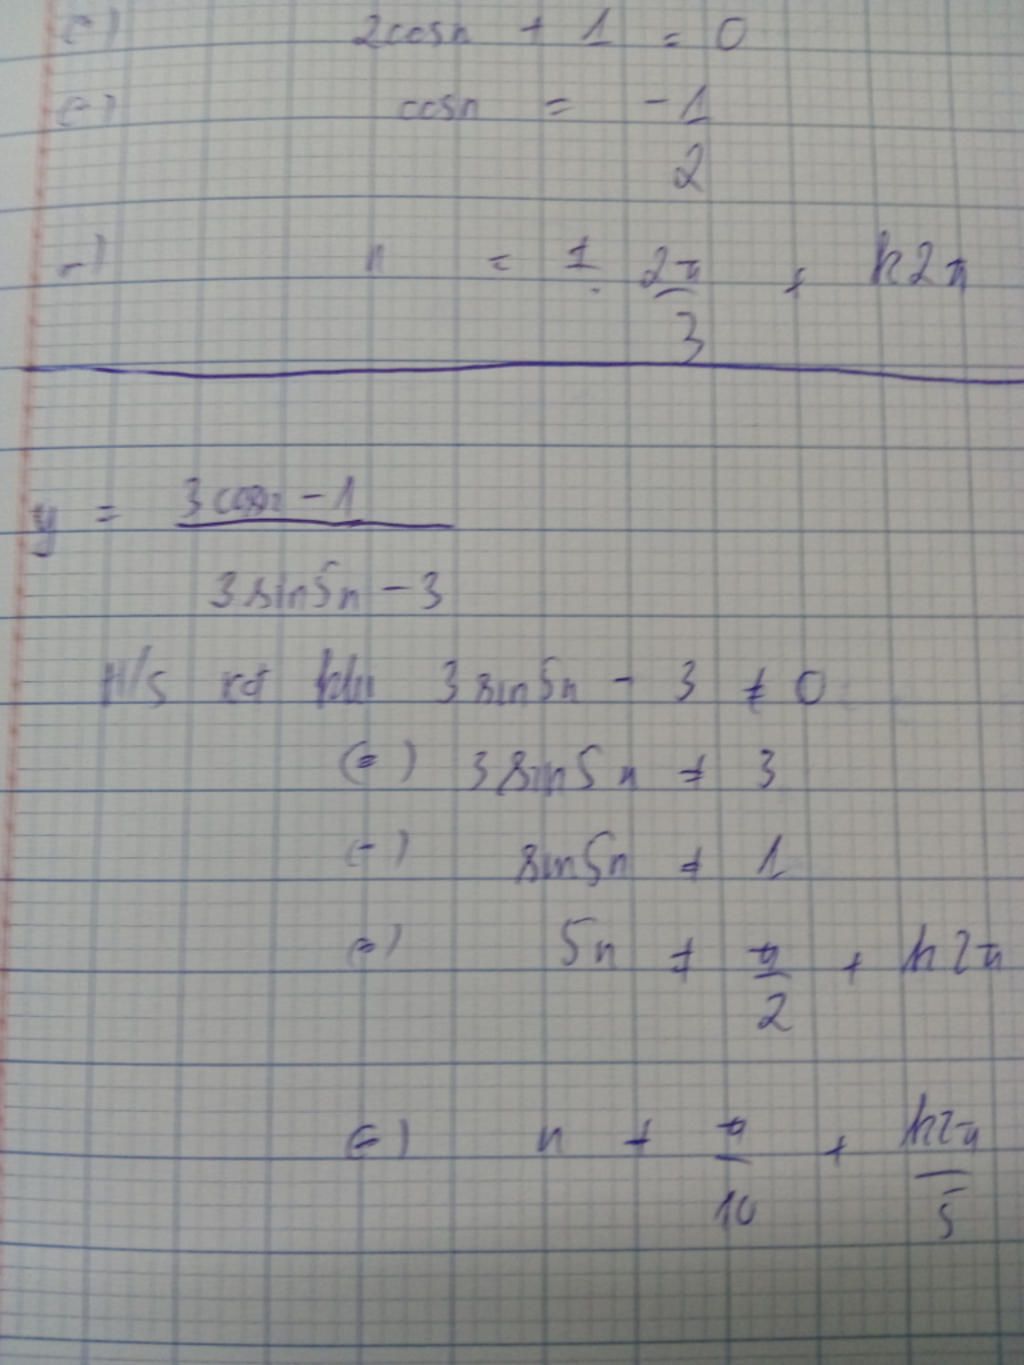 (=) 2cosx + 1 = 0
(=) cosx = -1/2
(=) x = ± 2π/3 + k2π
y = (3cosx - 1)/(3sin5x - 3)
H/s xđ khi 3sin5x - 3 ≠ 0
(=) 3sin5x ≠ 3
(=) sin5x ≠ 1
(=) 5x ≠ π/2 + k2π
(=) x ≠ π/10 + k2π/5